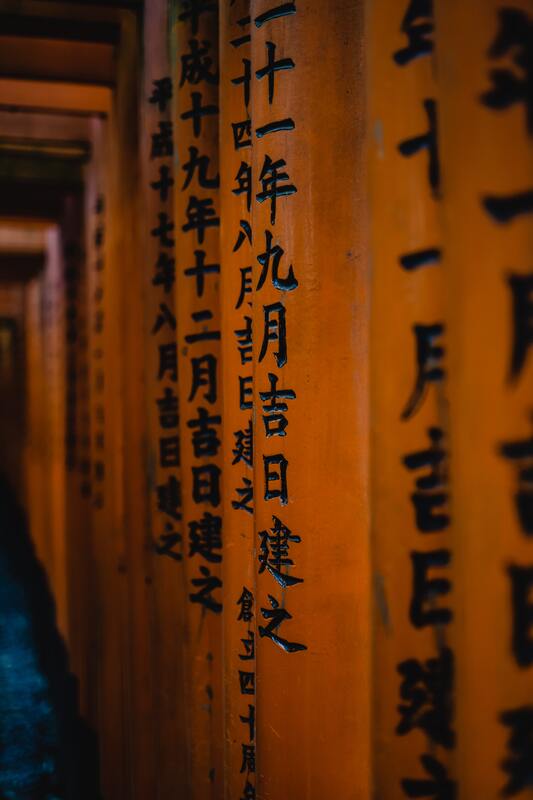 年一月吉日建
年十一月吉日建之
二十一年九月吉日建之
二十四年八月吉日建之
創立四十周年
平成十九年十二月吉日建之
平成十七年八月吉日建之